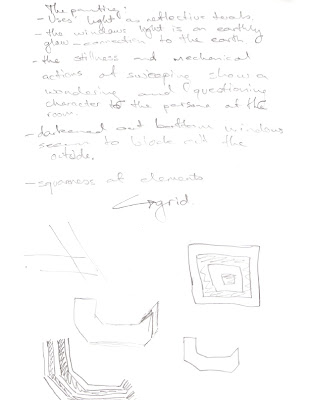 The painting -
- Uses light as reflective tones.
- the windows light is an earthly
glow - connection to the earth
- the stillness and mechanical
actions of sweeping shows a
wondering and questioning
character to the persona of the
room.
- darkened out bottom windows
seems to block out the
outside.
- squareness of elements
grid.